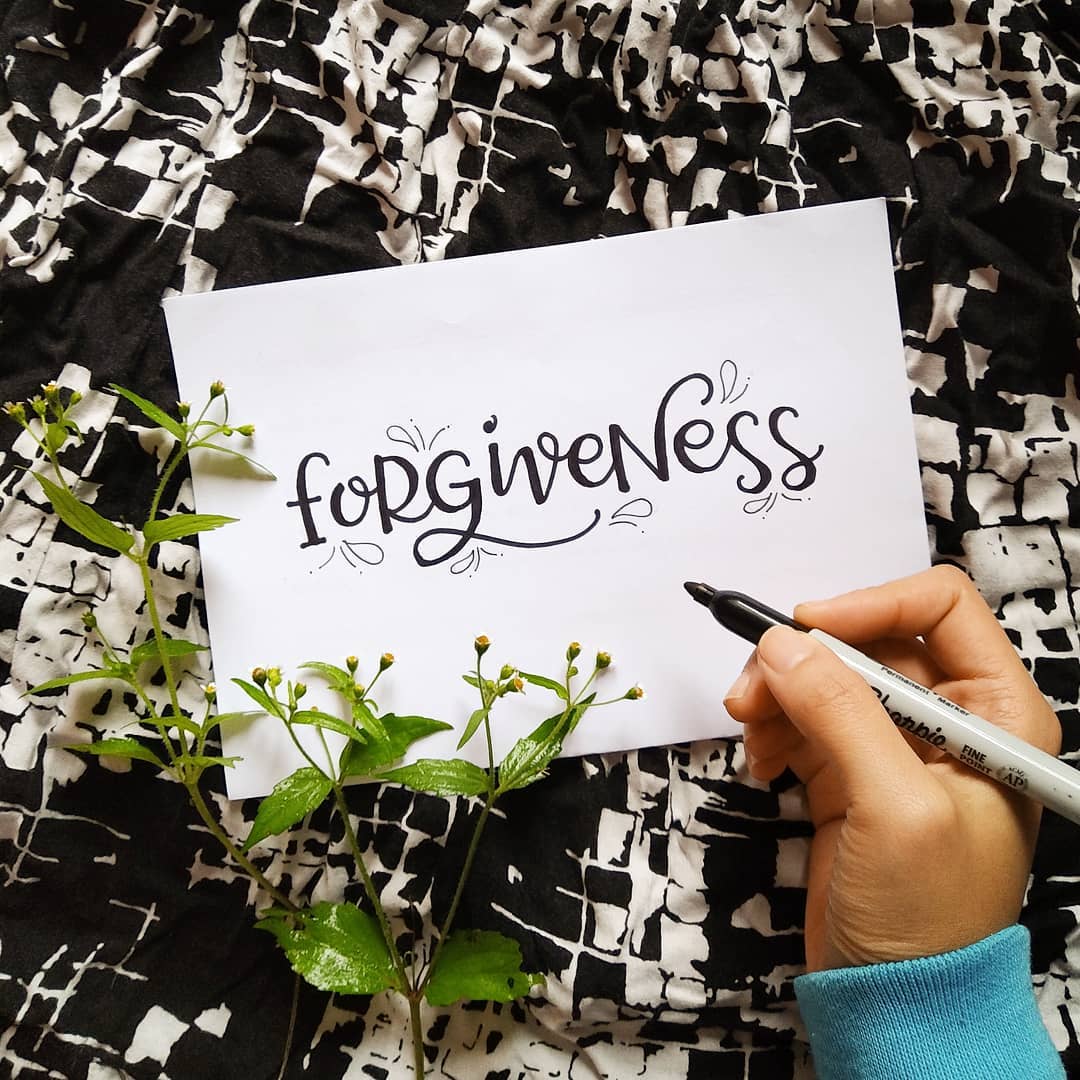 foRGiveNess
Permanent Marker
Sharpie
FINE
POINT
AP